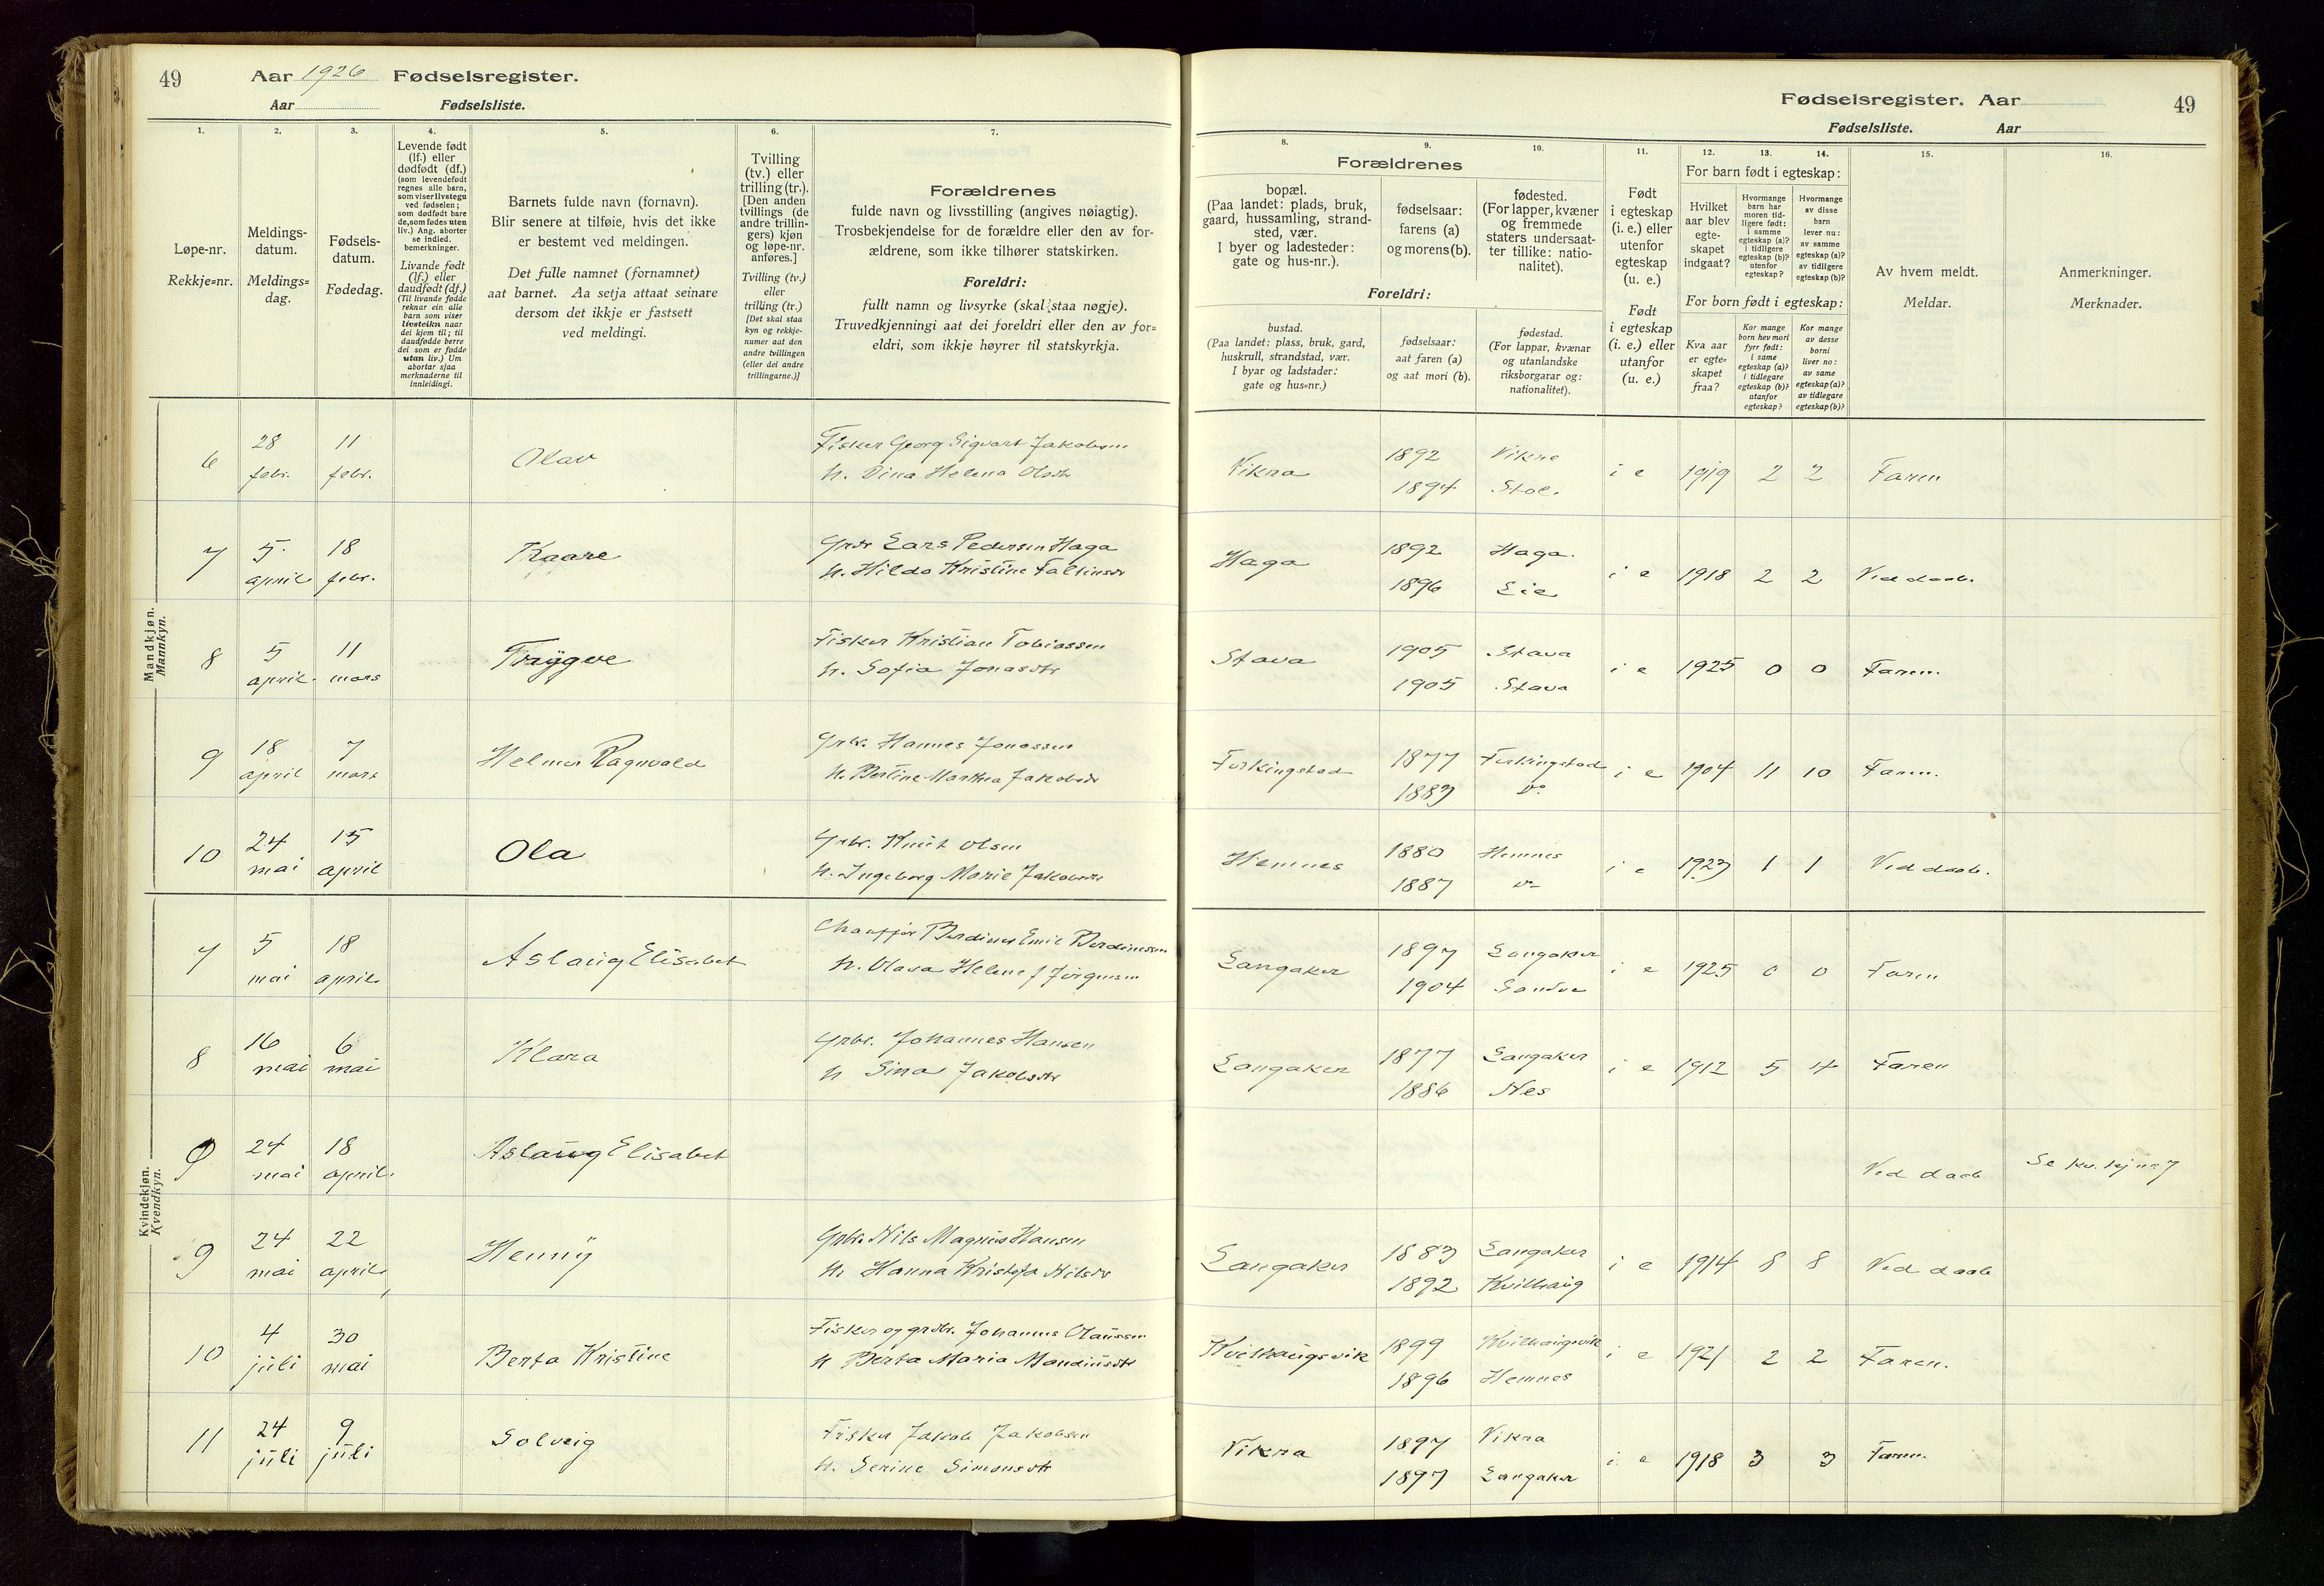 49 Aar 1926 Fødselsregister.
Aar Fødselsliste.
Fødselsregister. Aar 49
Fødselsliste. Aar
1. 2. 3. 4. 5. 6. 7.
8. 9. 10. 11. 12. 13. 14. 15. 16.
Løpe-nr.
Rekkje=nr.
Meldings-
datum.
Meldings=
dag.
Fødsels-
datum.
Fødedag.
Levende født
(lf.) eller
dødfødt (df.)
(som levendefødt
regnes alle barn,
som viser livstegn
ved fødselen;
som dødfødt bare
de, som fødes uten
liv.) Ang. aborter
se indled.
bemerkninger.
Livande født
(lf.) eller
daudfødt (df.)
(Til livande fødde
reknar ein alle
barn som viser
livsteikn naar
dei kjem til; til
daudfødde berre
dei som er fødde
utan liv.) Um
abortar sjaa
merknaderne til
innleidingi.
Barnets fulde navn (fornavn).
Blir senere at tilføie, hvis det ikke
er bestemt ved meldingen.
Det fulle namnet (fornamnet)
aat barnet. Aa setja attaat seinare
dersom det ikkje er fastsett
ved meldingi.
Tvilling
(tv.) eller
trilling (tr.).
[Den anden
tvillings (de
andre trillin-
gers) kjøn
og løpe-nr.
anføres.]
Tvilling (tv.)
eller
trilling (tr.)
[Det skal staa
kyn og rekkje-
numer aat den
andre tvillingen
(eller dei andre
trillingarne.)]
Forældrenes
fulde navn og livsstilling (angives nøiagtig).
Trosbekjendelse for de forældre eller den av for-
ældrene, som ikke tilhører statskirken.
Foreldri:
fullt namn og livsyrke (skal staa nøgje).
Truvedkjenningi aat dei foreldri eller den av for=
eldri, som ikkje høyrer til statskyrkja.
Forældrenes
bopæl.
(Paa landet: plads, bruk,
gaard, hussamling, strand-
sted, vær.
I byer og ladesteder:
gate og hus-nr.).
fødselsaar:
farens (a)
og morens (b).
fødested.
(For lapper, kvæner
og fremmede
staters undersaat-
ter tillike: natio-
nalitet).
Foreldri:
bustad.
(Paa landet: plass, bruk, gard,
huskrull, strandstad, vær.
I byar og ladstader:
gate og hus=nr.)
fødselsaar:
aat faren (a)
og aat mori (b).
fødestad.
(For lappar, kvænar
og utanlandske
riksborgarar og:
nationalitet).
Født
i egteskap
(i. e.) eller
utenfor
egteskap
(u. e.)
Født
i egteskap
(i. e.) eller
utanfor
(u. e.)
For barn født i egteskap:
Hvilket
aar blev
egte-
skapet
indgaat?
Hvormange
barn har
moren tid-
ligere født:
i samme
egteskap (a)?
i tidligere
egteskap (b)?
utenfor
egteskap?
Hvormange
av disse
barn
lever nu:
av samme
egteskap (a)?
av tidligere
egteskap (b)?
For born født i egteskap:
Kva aar
er egte=
skapet
fraa?
Kor mange
born hev mori
fyrr født:
i same
egteskap (a)?
i tidlegare
egteskap (b)?
utanfor
egteskap?
Kor mange
av desse
borni
liver no:
av same
egteskap (a)?
av tidlegare
egteskap (b)?
Av hvem meldt.
Meldar.
Anmerkninger.
Merknader.
Mandkjøn.
Mannkyn.
6 28 febr. 11 febr. Olav Fisker Georg Sigvart Jakobsen
h. Dina Helena Olsdtr
Vikra 1892 Vikra i e 1919 2 2 Faren
1894 Stol.
7 5. april 18 febr. Kaare Grbr Lars Pedersen Haga
h. Hilda Kristine Faltinsdtr
Haga 1892 Haga. i e 1918 2 2 Ved daab.
1896 Eie
8 5 april. 11 mars Trygve Fisker Kristian Tobiassen
h. Sofia Jonasdtr
Stava 1905 Stava i e 1925 0 0 Faren.
1905 Stava
9 18 april 7 mars Helmer Ragnvald Grbr. Hannes Jonassen
h. Bertine Marthea Jakobsdtr
Ferkingstad 1877 Ferkingstad i e 1904 11 10 Faren.
1883 do
10 24 mai 15 april Ola Grbr. Knut Olsen
h. Ingeborg Marie Jakobsdtr
Hemnes 1880 Hemnes i e 1923 1 1 Ved daab.
1887 do
Kvindekjøn.
Kvendkyn.
7 5 mai 18 april. Aslaug Elisabet Chauffør Berdines Emil Berdinessen
h. Olava Helene f Jørgensen
Langaker 1897 Langaker i e 1925 0 0 Faren
1904 Sandve
8 16 mai 6 mai Klara Grbr. Johannes Hansen
h Sina Jakobsdtr
Langaker 1877 Langaker i e 1912 5 4 Faren
1886 Nes
9 24 mai 18 april. Aslaug Elisabet
Ved daab Se kv. kj no 7
9 24 mai 22 april. Henny Grbr. Nils Magnus Hansen
h. Hanna Kristofa Nilsdtr
Langaker 1883 Langaker i e 1914 8 8 Ved daab
1892 Kvilhaug
10 4 juli 30 mai Berta Kristine Fisker og grdbr. Johannes Olaussen
h Berta Maria Mandiusdtr
Kvilhaugsvik 1899 Kvilhaugsvik i e 1921 2 2 Faren.
1896 Hemnes
11 24 juli 9 juli Solveig Fisker Jakob Jakobsen
h. Serine Simonsdtr
Vikra 1897 Vikra i e 1918 3 3 Faren.
1897 Langaker